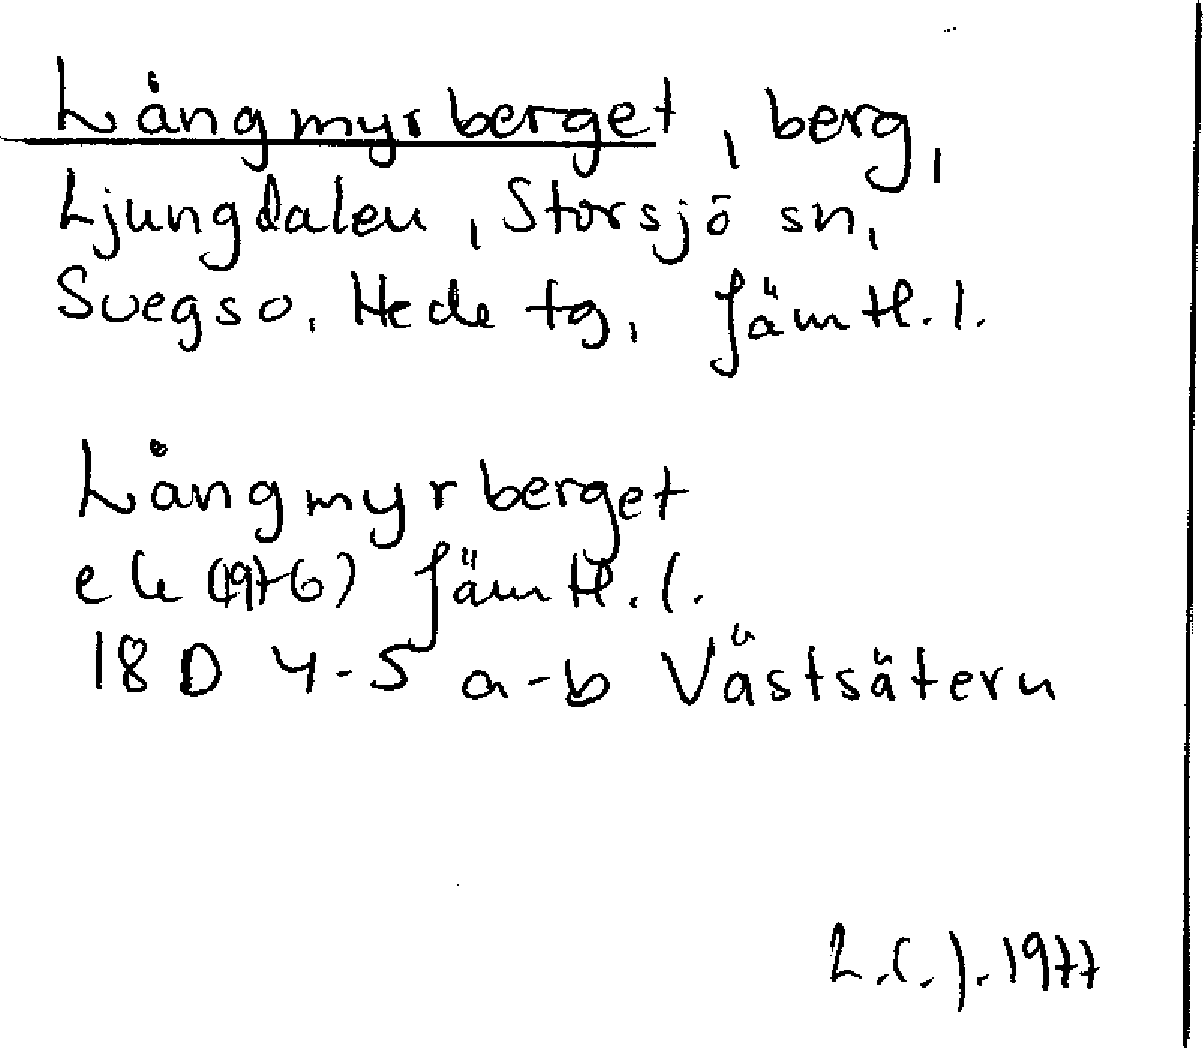 Långmyrberget, berg,
Ljungdalen, Storsjö sn,
Svegs o. Hede tg, Jämtl. l.
Långmyrberget
ek (1976) Jämtl. l.
18 D 4-5 a-b Västsätern
L.C.J. 1977